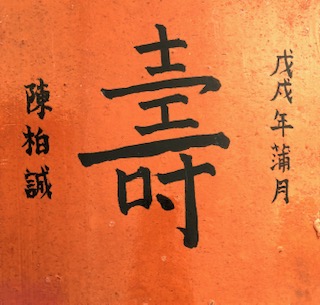 戊戌年蒲月
壽
陳柏誠